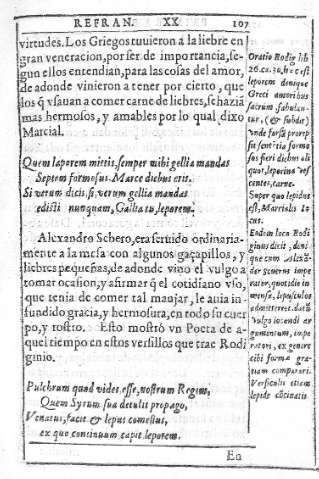 REFRAN. XX 107
virtudes. Los Griegos tuuieron a la liebre en
gran veneracion, por ser de importancia, se-
gun ellos entendian, para las cosas del amor,
de adonde vinieron a tener por cierto, que
los q̃ vsauan a comer carne de liebres, se hazia
mas hermosos, y amables por lo qual dixo
Marcial.
Quem laporem mittis, semper mihi gellia mandas
Septem formosus Marce diebus eris.
Si verum dicis, si, verum gellia mandas
edisti nunquam, Gallia tu, leporem.
Alexandro Sebero, era seruido ordinaria-
mente a la mesa con algunos gaçapillos, y
liebres pequeñas, de adonde vino el vulgo a
tomar ocasion, y afirmar q̃ el cotidiano vso,
que tenia de comer tal manjar, le auia in-
fundido gracia, y hermosura, en todo su cuer
po, y rostro. Esto mostrò vn Poeta de a-
quel tiempo en estos versillos que trae Rodi
ginio.
Pulchrum quod vides esse, nostrum Regem,
Quem Syrum sua detulit propago,
Venatus, facit & lepus comestus,
ex quo continuum capit leporem.
En
Oratio Rodig lib
26. ca. 30, hec est
leporem denique
Greci amoribus
sacrum fabulan-
tur, (& subdit)
vnde forsã prorep
sit sententia formo
sos fieri diebus ali
quot, leporina ves
centes, carne.
Super quo lepidus
est, Martialis lo
cus.
Endem loco Rodi
ginus dicit, deni
que cum Alexã-
der generis impe
rator, quotidie in
mensa, lepusculos
admitteret. datũ
vulgo iocandi ar
gumentum, impe
ratori, ex genere
cibi formæ gra-
tiam comparari.
Versiculis etiam
lepide concinatis.